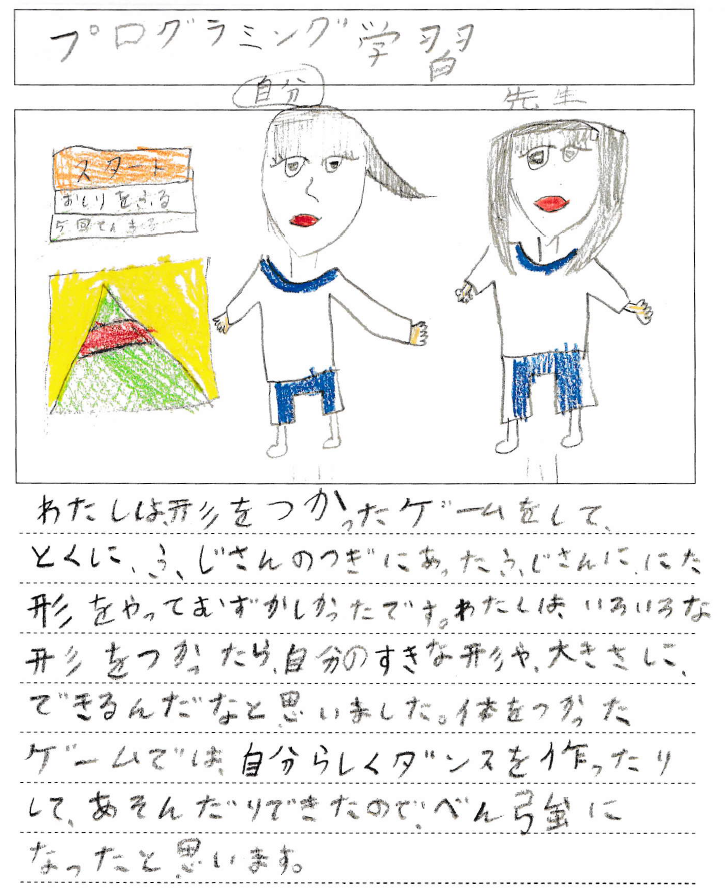 プログラミング学習
自分
先生
スタート
おしりをふる
5回てんま
わたしは、形をつかったゲームをして、
とくに、ふ、じさんのつぎにあったふ、じさんに、にた
形をやってむずかしかったです。わたしは、いろいろな
形をつかったら、自分のすきな形や、大きさに、
できるんだなと思いました。体をつかった
ゲームでは、自分らしくダンスを作ったり
して、あそんだりできたので、べん強に
なったと思います。